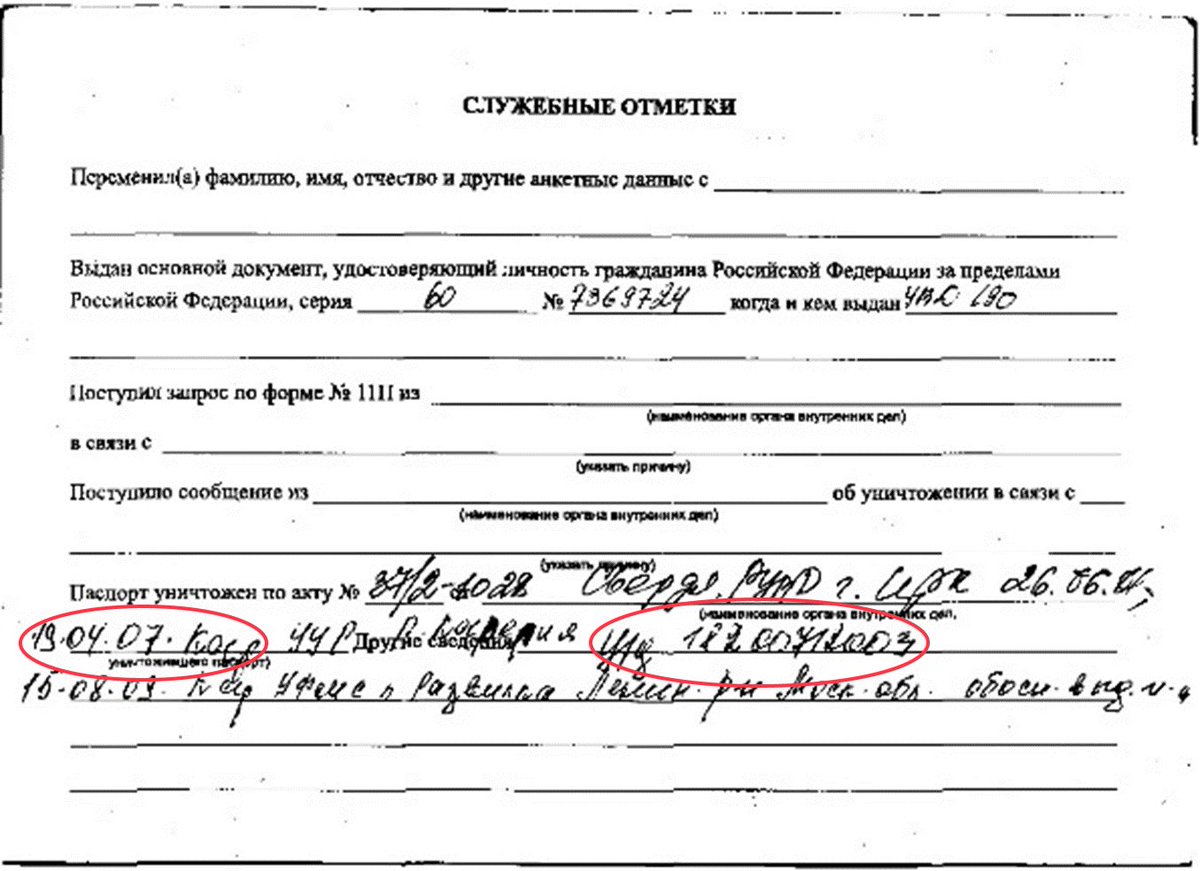 СЛУЖЕБНЫЕ ОТМЕТКИ
Переменил(а) фамилию, имя, отчество и другие анкетные данные с
Выдан основной документ, удостоверяющий личность гражданина Российской Федерации за пределами
Российской Федерации, серия 60 № 7369724 когда и кем выдан
Поступил запрос по форме № 1П из
(наименование органа внутренних дел)
в связи с
(указать причину)
Поступило сообщение из об уничтожении в связи с
(наименование органа внутренних дел)
(указать причину)
Паспорт уничтожен по акту № 37/2-1028 Свердл. РУВД г. Ирк 26.06.01,
(наименование органа внутренних дел,
19.04.07. УУР Другие сведения у/д 18200712003
уничтожившего паспорт)
15.08.09. УФМС п Развилка Ленин. р-н Моск. обл. обосн. выд.